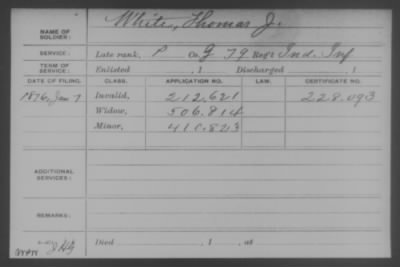 NAME OF SOLDIER: White, Thomas J.
SERVICE: Late rank, P Co. G 79 Reg't Ind. Inf
TERM OF SERVICE: Enlisted , 1 Discharged , 1
DATE OF FILING. CLASS. APPLICATION NO. LAW. CERTIFICATE NO.
1876, Jan 7 Invalid, 212.621 228.093
Widow, 506.814
Minor, 410.823
ADDITIONAL SERVICES:
REMARKS:
Died , 1 , at